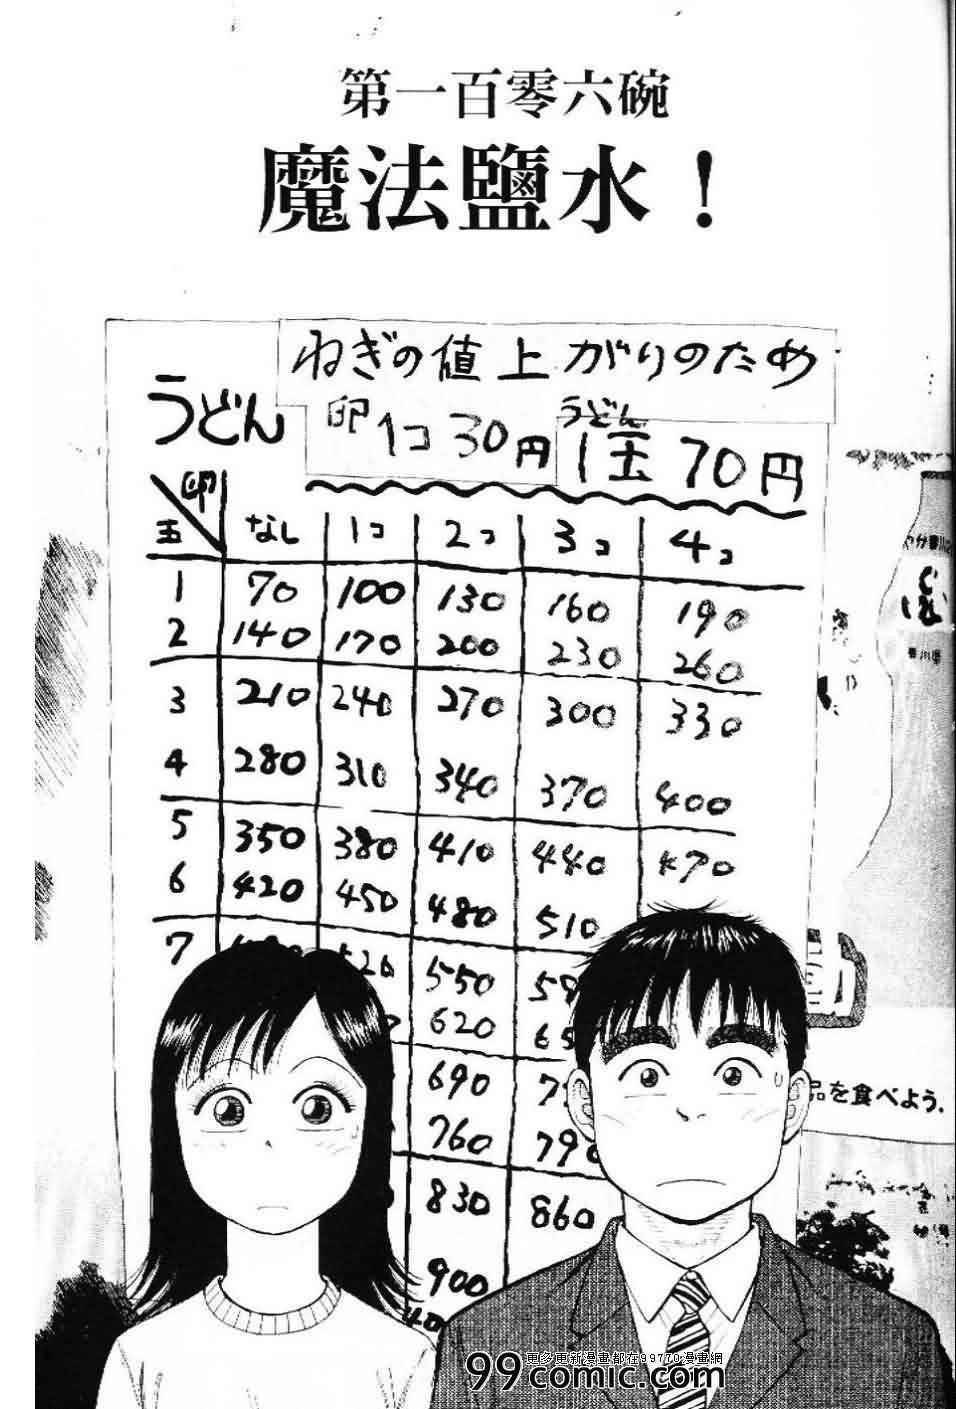 第一百零六碗
魔法鹽水！
ねぎの値上がりのため
うどん 卵1コ30円 うどん1玉70円
玉 卵 なし 1コ 2コ 3コ 4コ
1 70 100 130 160 190
2 140 170 200 230 260
3 210 240 270 300 330
4 280 310 340 370 400
5 350 380 410 440 470
6 420 450 480 510
7 550
620
690
760 790
830 860
900
品を食べよう.
香川県
更多更新漫畫都在99770漫畫網
99comic.com